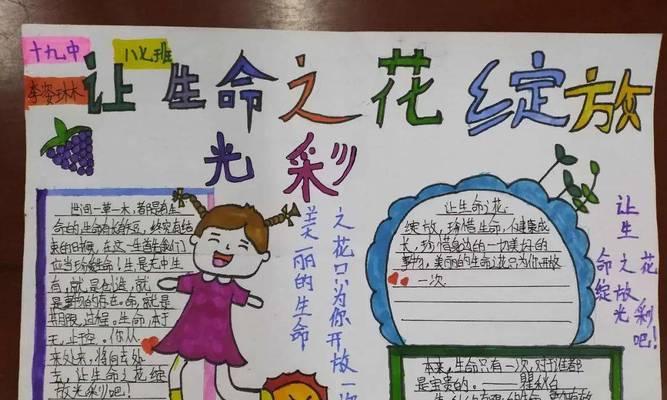 十九中
八七班
李姿琳木
让生命之花绽放
光彩
世间一草一木，都是有生
命的，生命有长有短，终究有结
束的时候，在这一生当中我们
应当珍惜生命！生，是无中生
有，就是创造，就
是事物的存在。命，就是
期限，过程。生命，本于
无，止于空。你从
本处来，将向去处
去，让生命之花绽
放光彩吧！
美丽的生命
之花只为你开放一次
让生命之花
绽放，珍惜生命，健康成
长，珍惜身边的一切美好的
事物，美丽的生命之花只为你开放
一次
让生
命之花
绽放
光彩吧！
本来，生命只有一次，对于谁都
是宝贵的。——瞿秋白